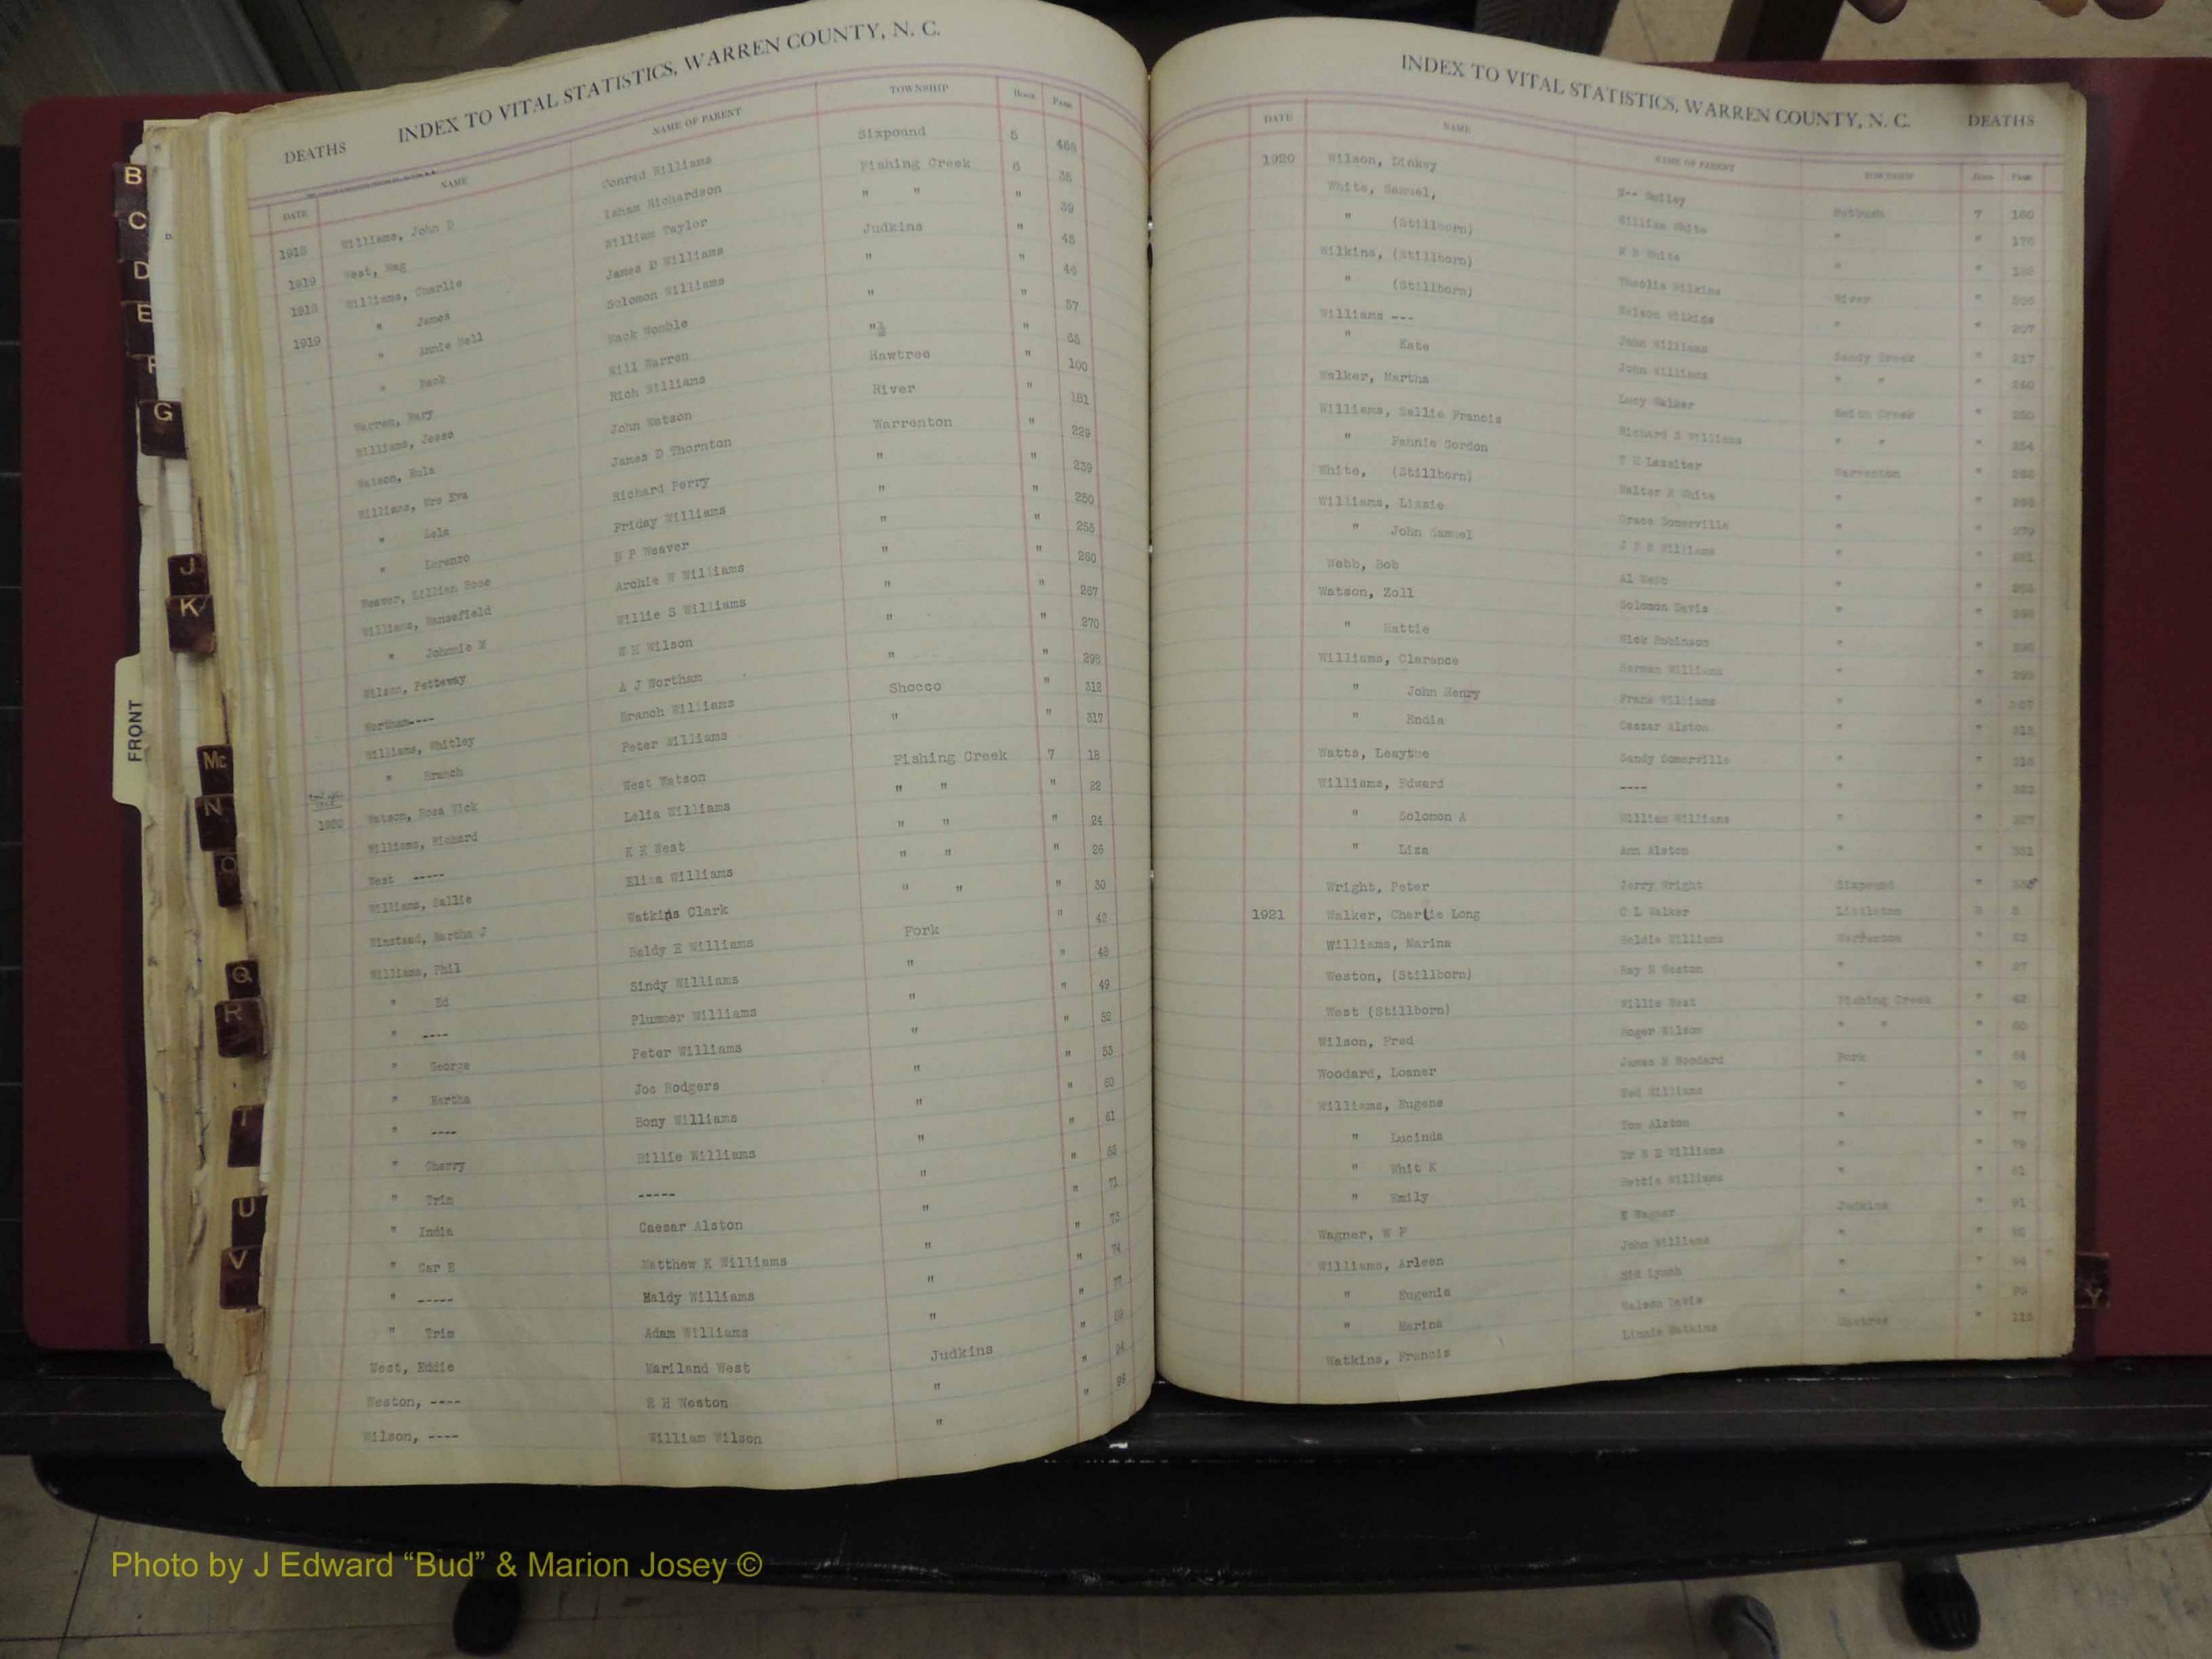 INDEX TO VITAL STATISTICS, WARREN COUNTY, N. C.
DEATHS
DATE NAME NAME OF PARENT TOWNSHIP BOOK PAGE
1918 Williams, John D Conrad Williams Sixpound 5 456
1919 West, Mag Isham Richardson Fishing Creek 6 35
1918 Williams, Charlie William Taylor " " " 39
1919 " James James D Williams Judkins " 45
" Annie Bell Solomon Williams " " 46
" Mack Womble " " 57
Warren, Mary Will Warren " " 65
Williams, Jesse Rich Williams Hawtree " 100
Watson, Eula John Watson River " 181
Williams, Mrs Eva James D Thornton Warrenton " 229
" Lela Richard Perry " " 239
" Lorenzo Friday Williams " " 250
Weaver, Lillian Rose B P Weaver " " 255
Williams, Mansefield Archie W Williams " " 260
" Johnnie M Willie S Williams " " 267
Wilson, Petteway W H Wilson " " 270
Wortham---- A J Wortham " " 298
Williams, Whitley Branch Williams Shocco " 312
" Branch Peter Williams " " 317
1920 Watson, Rosa Vick West Watson Fishing Creek 7 18
Williams, Richard Lelia Williams " " " 22
West ----- K E West " " " 24
Williams, Sallie Eliza Williams " " " 26
Winstead, Martha J Watkins Clark " " " 30
Williams, Phil Baldy E Williams Fork " 42
" Ed Sindy Williams " " 48
" ---- Plummer Williams " " 49
" George Peter Williams " " 52
" Martha Joe Rodgers " " 53
" ---- Bony Williams " " 60
" Cherry Billie Williams " " 61
" Trim ----- " " 65
" India Caesar Alston " " 71
" Car E Matthew K Williams " " 73
" ----- Baldy Williams " " 74
" Trim Adam Williams " " 77
West, Eddie Mariland West Judkins " 89
Weston, ---- R H Weston " " 94
Wilson, ---- William Wilson " " 99
INDEX TO VITAL STATISTICS, WARREN COUNTY, N. C. DEATHS
DATE NAME NAME OF PARENT TOWNSHIP Book Page
1920 Wilson, Dinkey W-- Smiley Nutbush 7 160
White, Samuel, William White " " 176
" (Stillborn) White " "
Wilkins, (Stillborn) Wilkins River "
" (Stillborn) Nelson Wilkins " " 207
Williams --- John Williams Sandy Creek " 217
" Kate John Williams " " " 240
Walker, Martha Lucy Walker Smith Creek " 250
Williams, Sallie Francis Richard S Williams " " " 254
" Fannie Gordon T H Lassiter Warrenton "
White, (Stillborn) Walter R White " "
Williams, Lizzie Grace Somerville " "
" John Samuel Williams " "
Webb, Bob Al Webb " "
Watson, Zoll Solomon Davis " "
" Hattie Nick Robinson " "
Williams, Clarence Herman Williams " "
" John Henry Frank Williams " "
" Endia Caesar Alston " "
Watts, Leaythe Sandy Somerville " "
Williams, Edward ---- " "
" Solomon A William Williams " "
" Liza Ann Alston " "
Wright, Peter Jerry Wright Sixpound "
1921 Walker, Charlie Long C L Walker Littleton 8
Williams, Marina Baldie Williams Warrenton "
Weston, (Stillborn) Ray H Weston " " 27
West (Stillborn) Willie West Fishing Creek " 42
Wilson, Fred Roger Wilson " " " 60
Woodard, Loaner James H Woodard Fork " 64
Williams, Eugene Ned Williams " " 70
" Lucinda Tom Alston " " 77
" Whit K Dr Williams " " 79
" Emily Bettie Williams " " 81
Wagner, W F E Wagner Judkins " 91
Williams, Arleen John Williams " "
" Eugenia Sid Lynch " " 94
" Marina Nelson Davis " "
Watkins, Francis Linnie Watkins Hawtree "
B
C
D
E
F
G
J
K
FRONT
Mc
N
O
Q
R
T
U
V
Y
Photo by J Edward “Bud” & Marion Josey ©